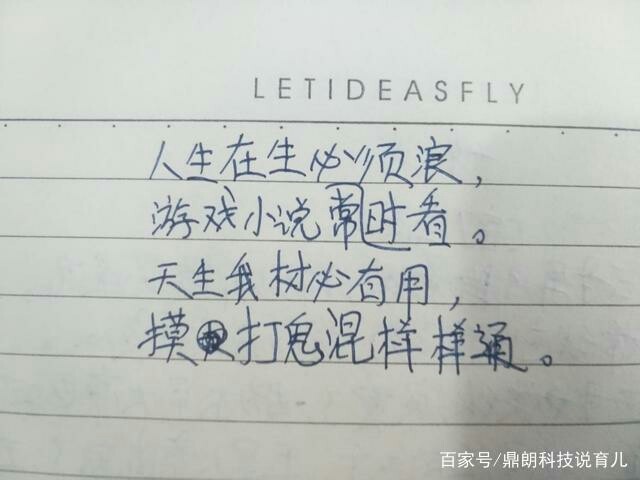 LETIDEASFLY
人生在生必须浪，
游戏小说常时看。
天生我材必有用，
摸打鬼混样样通。
百家号/鼎朗科技说育儿